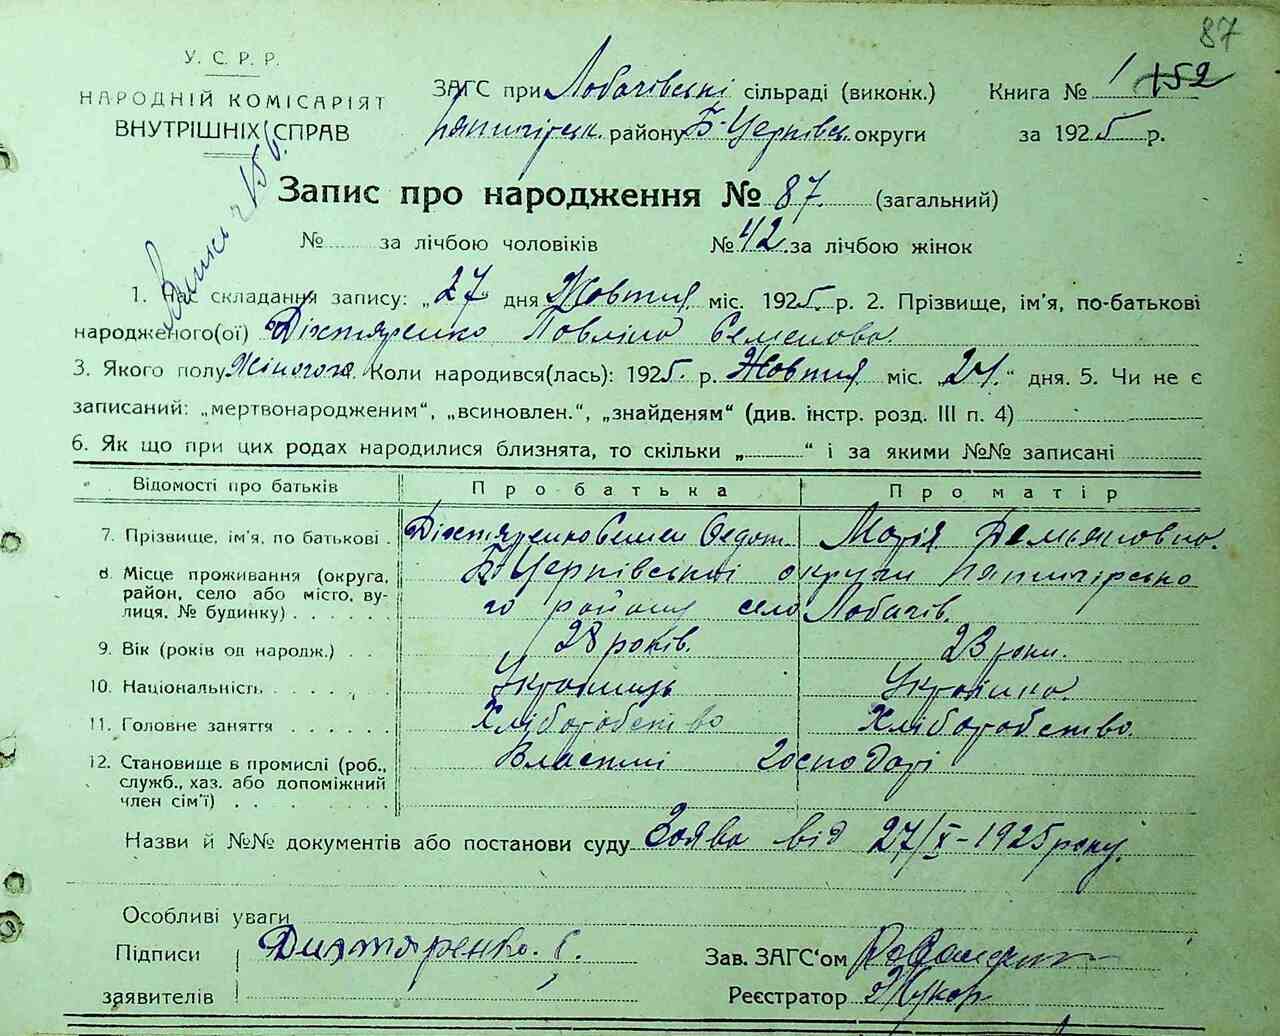 87
У. С. Р. Р.
НАРОДНІЙ КОМІСАРІЯТ
ВНУТРІШНІХ СПРАВ
ЗАГС при Лобачівські сільраді (виконк.) Книга № 1 152
Пятигірськ. району Б-Церківськ округи за 1925 р.
Запис про народження № 87. (загальний)
№ за лічбою чоловіків № 42 за лічбою жінок
1. Час складання запису: „27„ дня Жовтня міс. 1925 р. 2. Прізвище, ім'я, по-батькові
народженого(ої) Діхтяренко Повліна Семенова.
3. Якого полу Жіночого. Коли народився(лась): 1925. р. Жовтня міс. „24.“ дня. 5. Чи не є
записаний: „мертвонародженим“, „всиновлен.“, „знайденям“ (див. інстр. розд. III п. 4)
6. Як що при цих родах народилися близнята, то скільки „ “ і за якими №№ записані
Відомості про батьків Про батька Про матір
7. Прізвище, ім'я, по батькові . Діхтяренко Семен Федот. Марія Демьяновна.
8. Місце проживання (округа, район, село або місто, вулиця, № будинку) . . . . . .
Б Церківської округи Пятигірсько
го району село Лобачів.
9. Вік (років од народж.) . . 28 років. 23 роки.
10. Національність . . . . . . Українець Українка.
11. Головне заняття . . . . . . Хліборобство Хліборобство.
12. Становище в промислі (роб., Властні господарі
служб., хаз. або допоміжний
член сім'ї) . . . . . . . .
Назви й №№ документів або постанови суду Заява від 27/X-1925 року.
Особливі уваги
Підписи Дихтяренко. С. Зав. ЗАГС'ом
заявителів Реєстратор